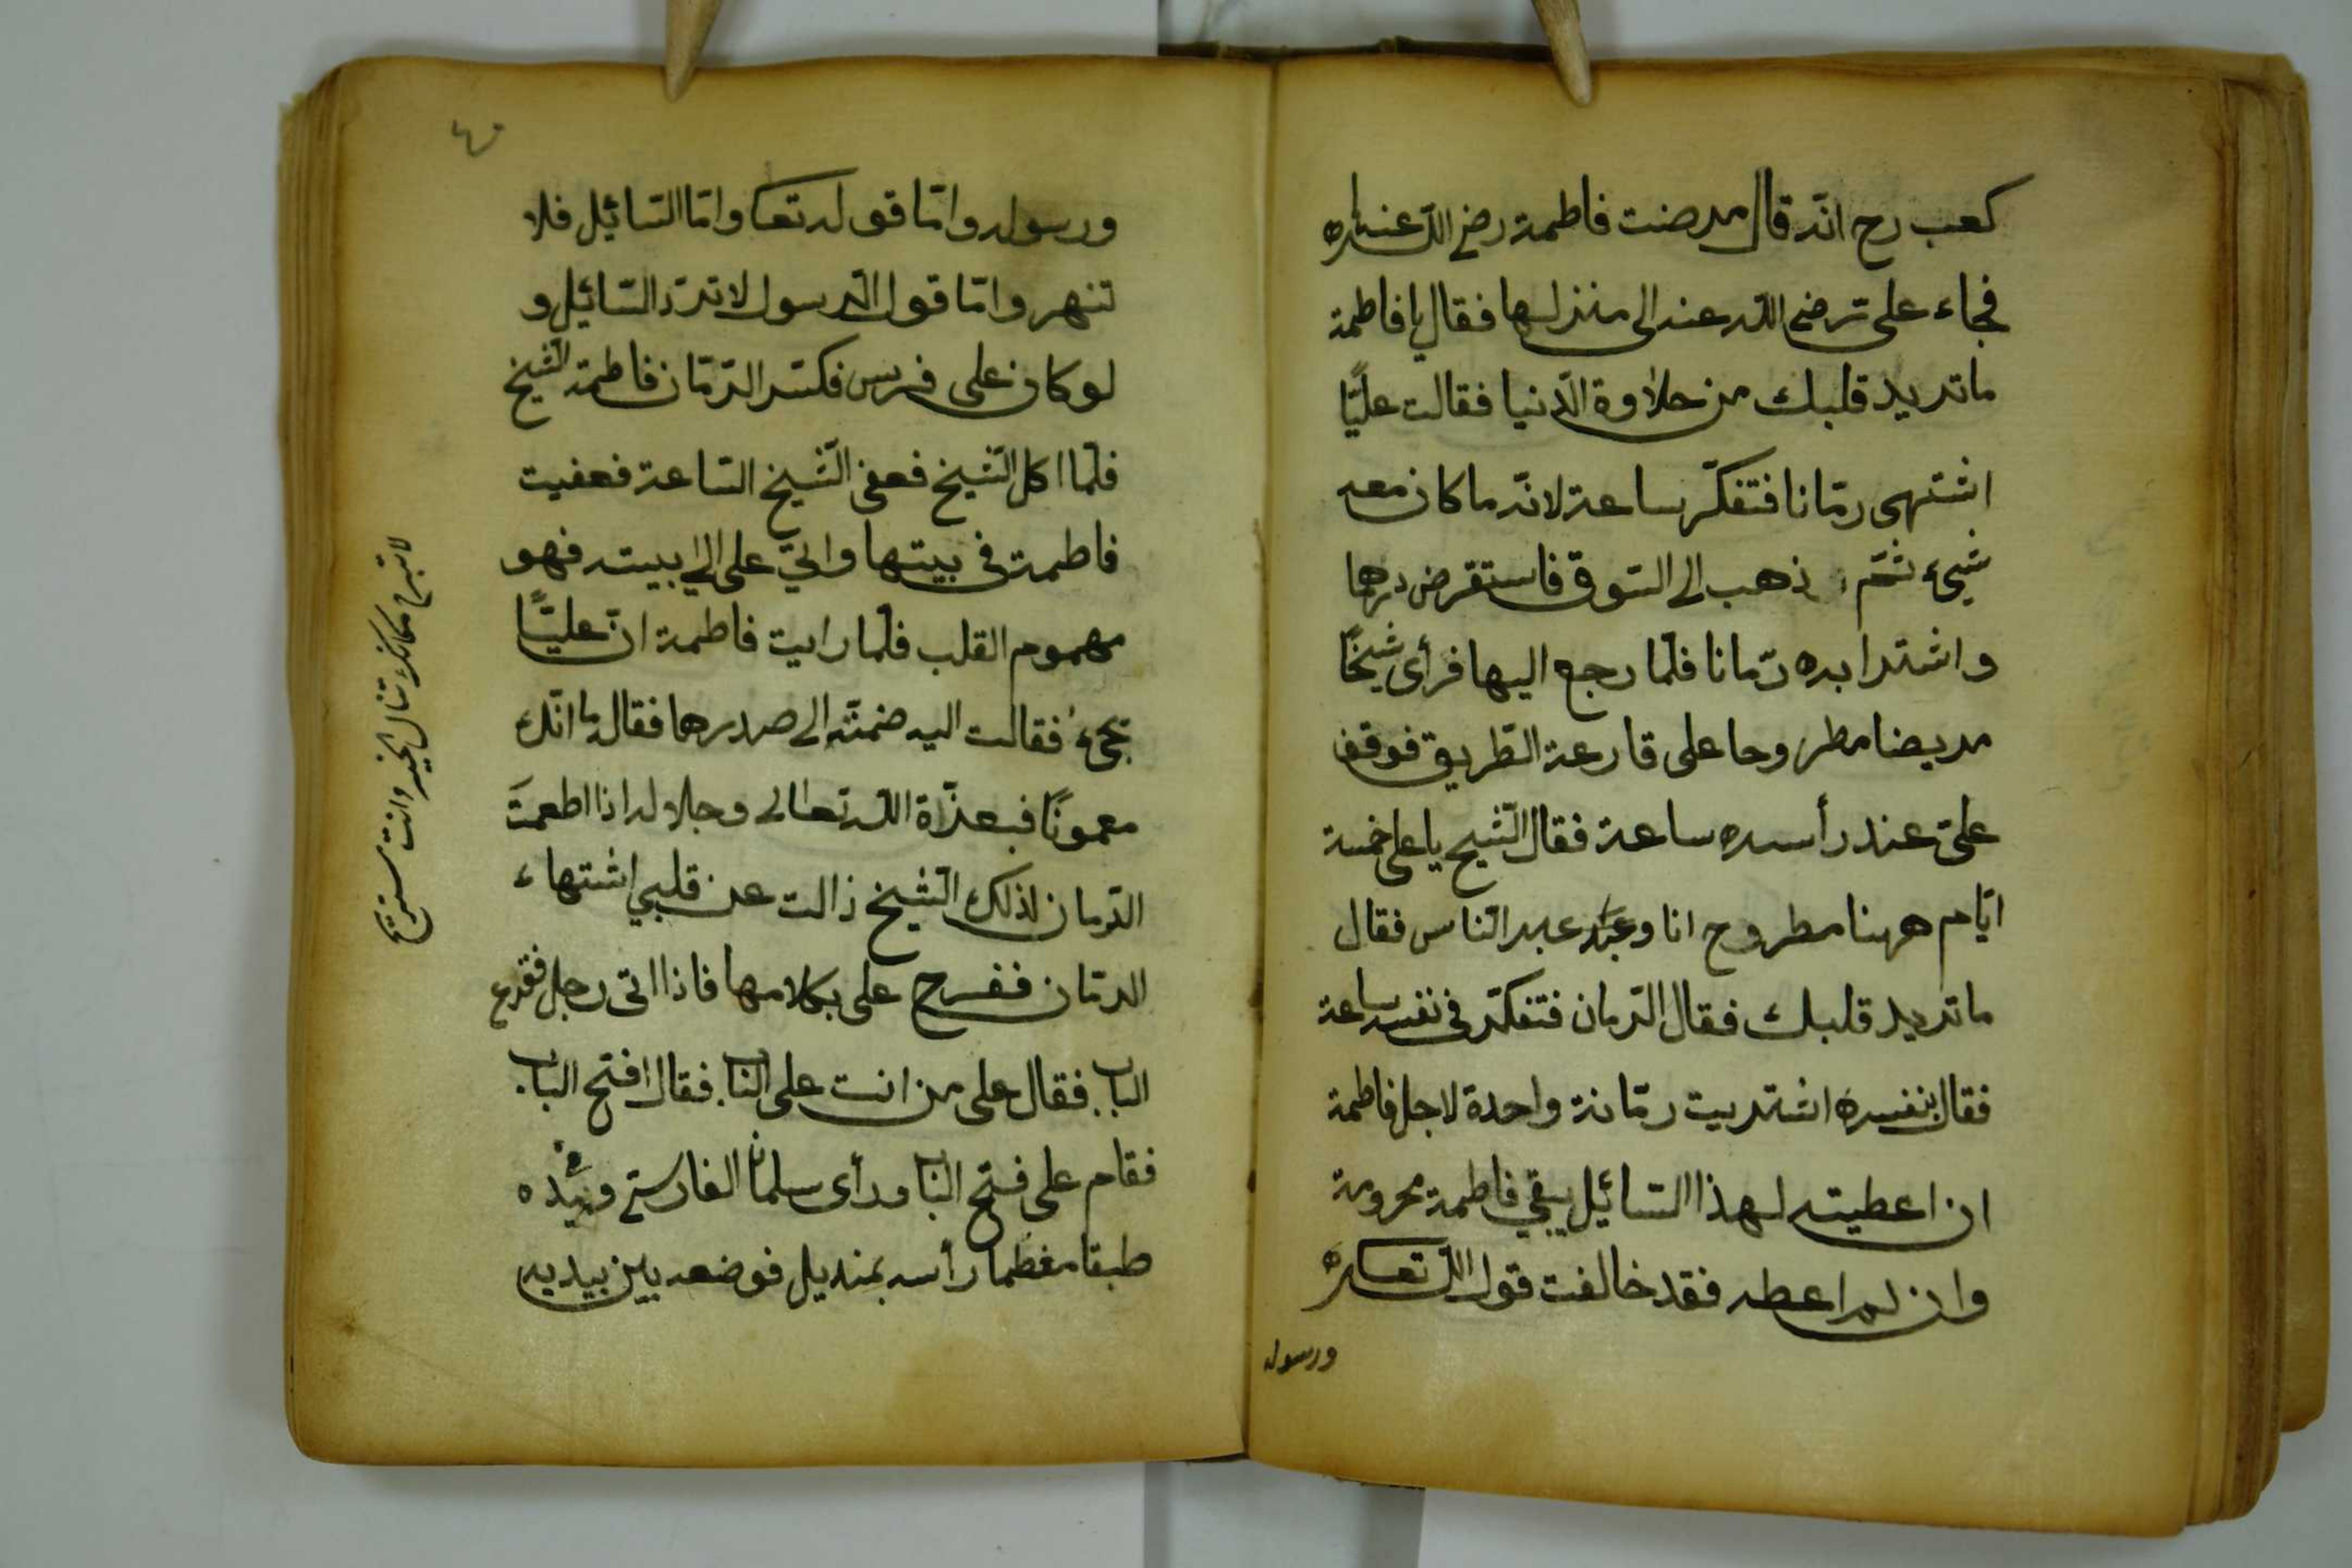 كعب رح انّه قال مرضت فاطمة رضى الله عنها
فجاء على رضى الله عنه الى منزلها فقال يا فاطمة
ما تريد قلبك من حلاوة الدّنيا فقالت عليًّا
اشتهى رمّانا فتفكّر ساعة لانّه ما كان معه
شيء ثمّ ذهب الى السّوق فاستقرض درهما
واشترا بده رمّانا فلمّا رجع اليها فرأى شيخًا
مريضا مطروحا على قارعة الطّريق فوقف
علىّ عند رأسه ساعة فقال الشّيخ يا على خمسة
ايّام ههنا مطروح انا و عبر النّاس فقال
ما تريد قلبك فقال الرّمان فتفكّر فى نفسه ساعة
فقال بنفسه اشتريت رمّانة واحدة لاجل فاطمة
ان اعطيته لهذا السّائيل يبقي فاطمة محرومة
وان لم اعطه فقد خالفت قول الله تعا
ورسوله
٤٠
ورسوله وامّا قوله تعا وامّا السّائيل فلا
تنهر وامّا قول الرسول لا تردّ السّائيل و
لو كان على فرس فكسّر الرّمّان فاطمة الشّيخ
فلمّا اكل الشّيخ فعفى الشّيخ السّاعة فعفيت
فاطمة فى بيتها واتي على الى بيته فهو
مهموم القلب فلمّا رايت فاطمة انّ عليًّا
يجئ فقالت اليه ضمتّه الى صدرها فقال ما انّك
معمونًا فبعزّة الله تعالى وجلاله اذا اطعمتَ
الرّمان لذلك الشّيخ زالت عن قلبي اشتهاء
الرمّان ففرح على بكلامها فاذا اتى رجل فقرع
الباب فقال على من انت على الباب فقال افتح الباب
فقام على فتح الباب ورأى سلمان الفارسي وبيده
طبقا مغطما رأسه بمنديل فوضعه بين يديه
لا تبرح مكانك لا تنال الخير وانت مستريح